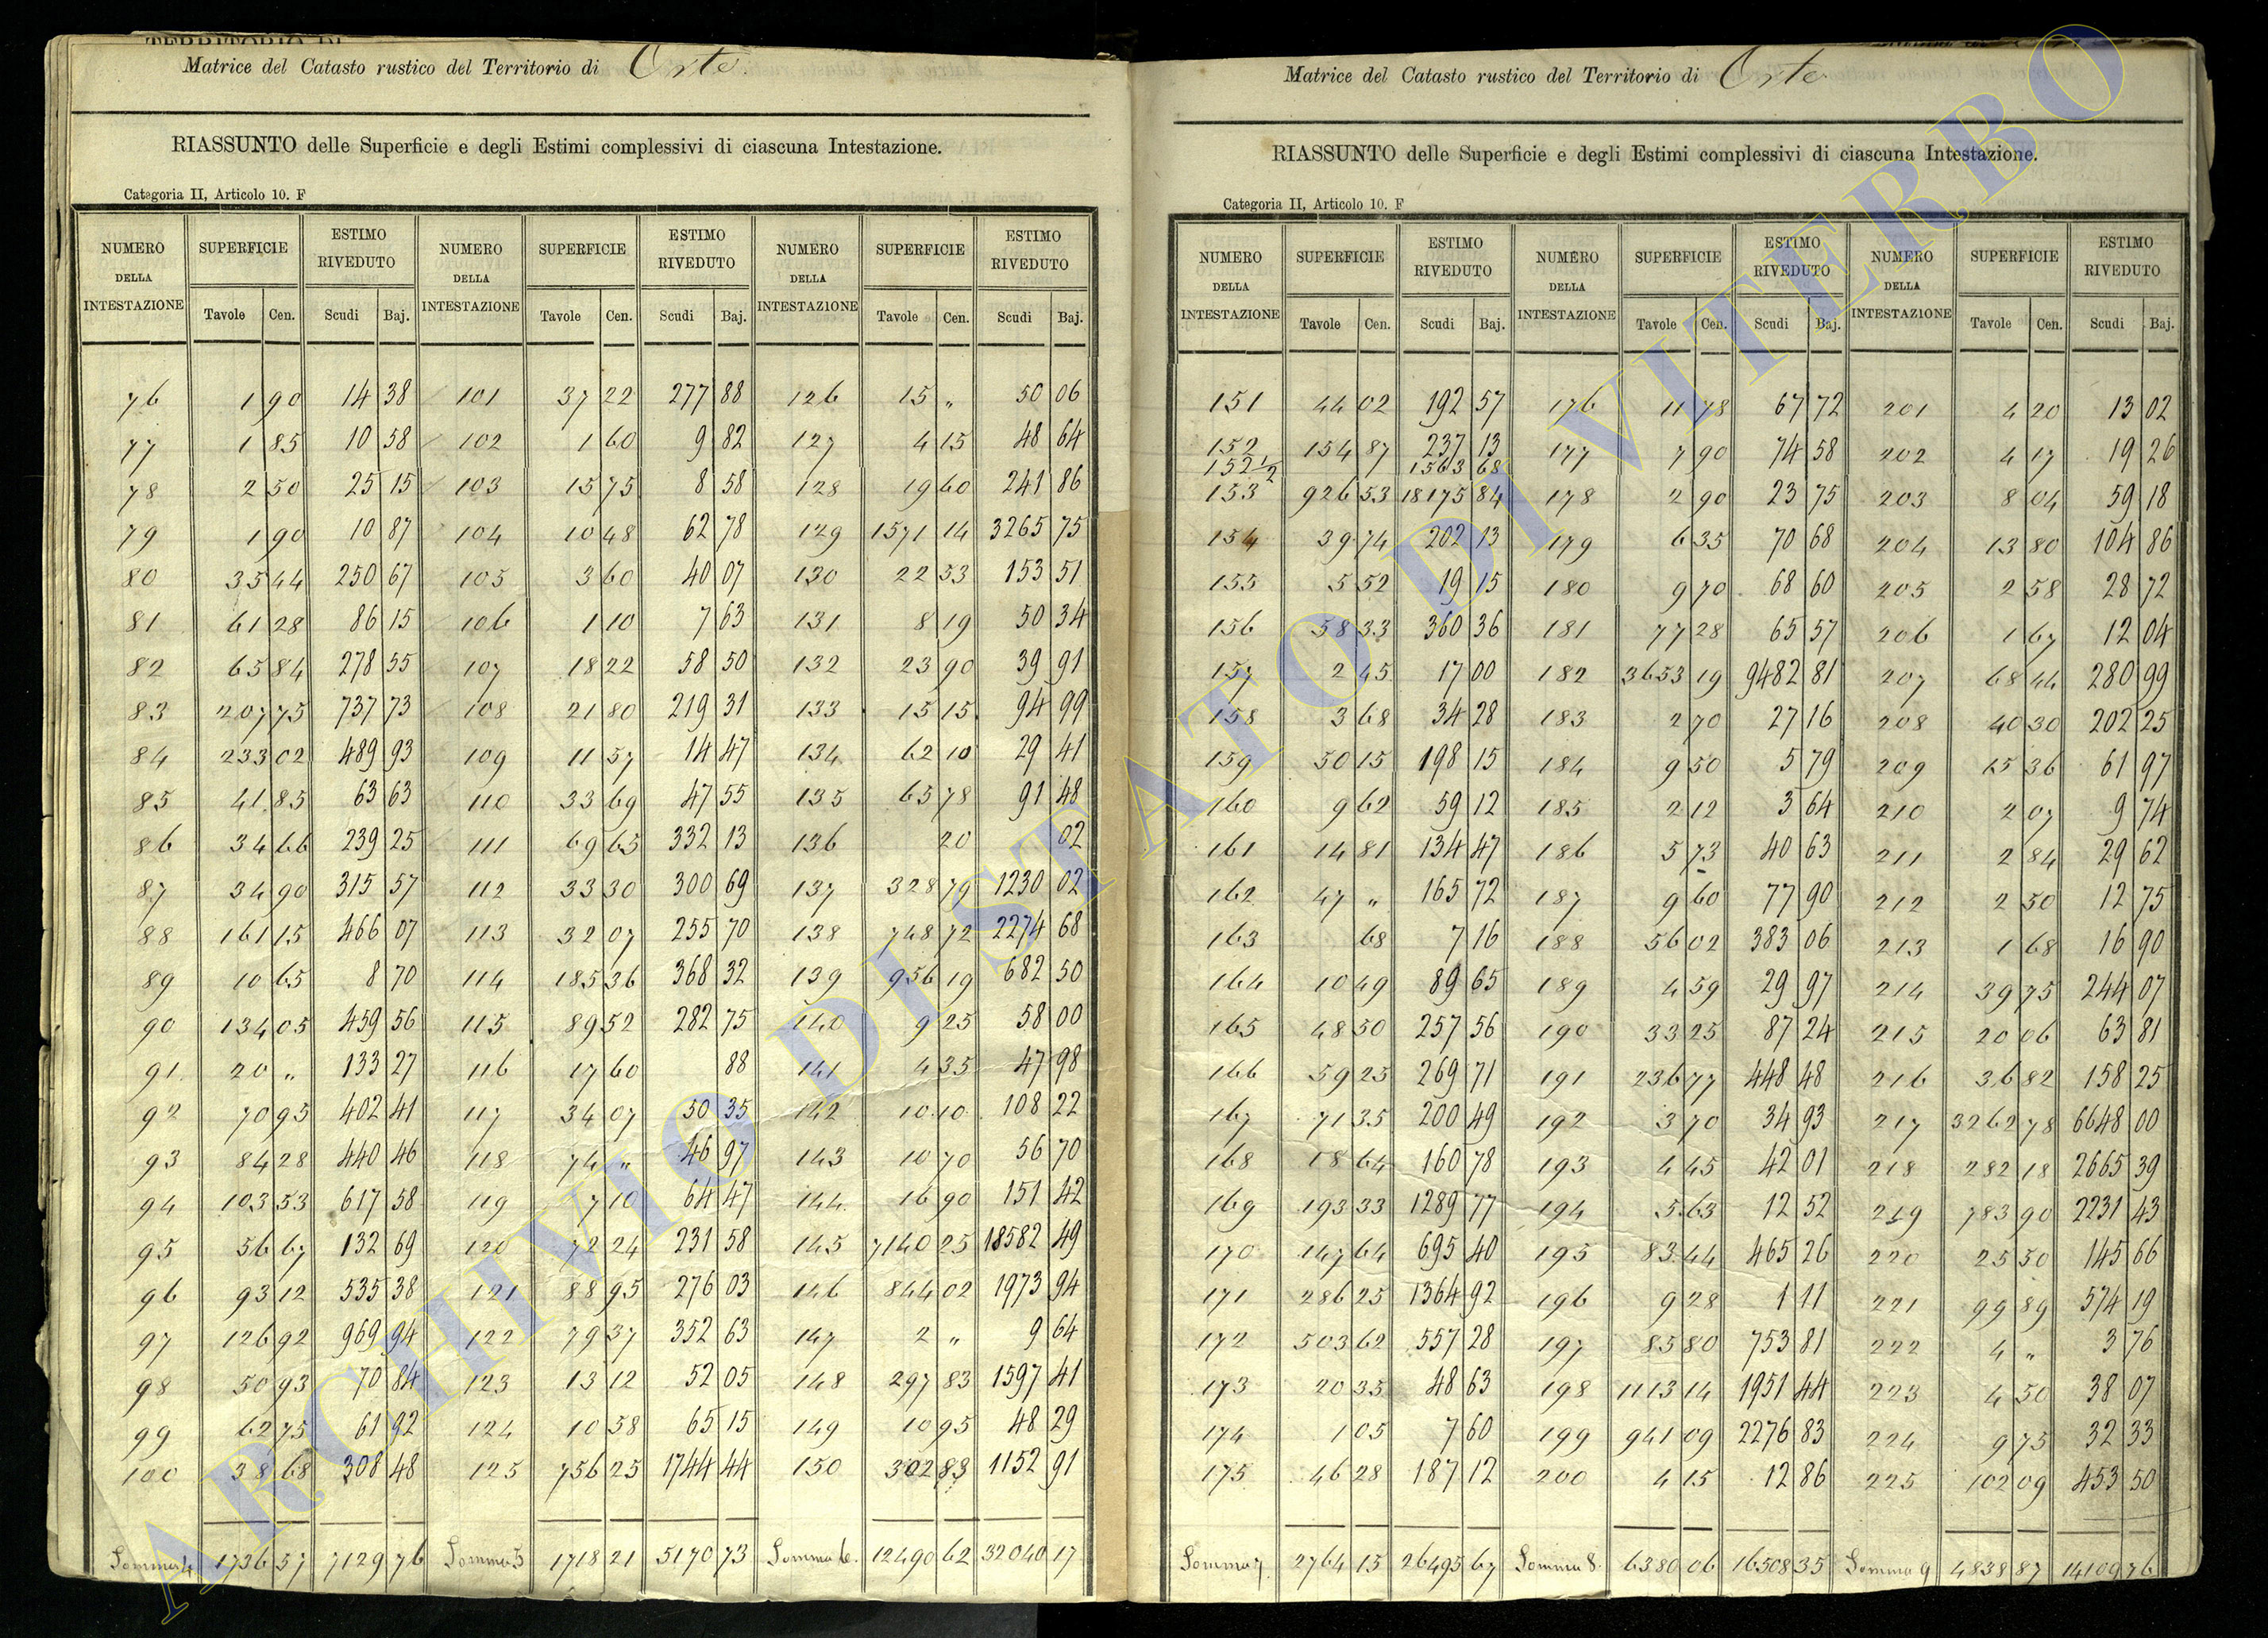 TERRITORIO DI
Matrice del Catasto rustico del Territorio di Orte.
RIASSUNTO delle Superficie e degli Estimi complessivi di ciascuna Intestazione.
Categoria II, Articolo 10. F
NUMERO DELLA INTESTAZIONE SUPERFICIE ESTIMO RIVEDUTO NUMERO DELLA INTESTAZIONE SUPERFICIE ESTIMO RIVEDUTO NUMERO DELLA INTESTAZIONE SUPERFICIE ESTIMO RIVEDUTO
Tavole Cen. Scudi Baj. Tavole Cen. Scudi Baj. Tavole Cen. Scudi Baj.
76 1 90 14 38 101 37 22 277 88 126 15 „ 50 06
77 1 85 10 58 102 1 60 9 82 127 4 15 48 64
78 2 50 25 15 103 15 75 8 58 128 19 60 241 86
79 1 90 10 87 104 10 48 62 78 129 1571 14 3265 75
80 35 44 250 67 105 3 60 40 07 130 22 53 153 51
81 61 28 86 15 106 1 10 7 63 131 8 19 50 34
82 65 84 278 55 107 18 22 58 50 132 23 90 39 91
83 207 75 737 73 108 21 80 219 31 133 15 15 94 99
84 233 02 489 93 109 11 57 14 47 134 62 10 29 41
85 41 85 63 63 110 33 69 47 55 135 65 78 91 48
86 34 66 239 25 111 69 65 332 13 136 20 02
87 34 90 315 57 112 33 30 300 69 137 328 79 1230 02
88 161 15 466 07 113 32 07 255 70 138 748 72 2274 68
89 10 65 8 70 114 185 36 368 32 139 956 19 682 50
90 134 05 459 56 115 89 52 282 75 140 9 25 58 00
91 20 „ 133 27 116 17 60 88 141 4 35 47 98
92 70 95 402 41 117 34 07 50 35 142 10 10 108 22
93 84 28 440 46 118 74 „ 46 97 143 10 70 56 70
94 103 53 617 58 119 7 10 64 47 144 16 90 151 42
95 56 67 132 69 120 72 24 231 58 145 7140 25 18582 49
96 93 12 535 38 121 88 95 276 03 146 844 02 1973 94
97 126 92 969 94 122 79 37 352 63 147 2 „ 9 64
98 50 93 70 84 123 13 12 52 05 148 297 83 1597 41
99 62 75 61 92 124 10 58 65 15 149 10 95 48 29
100 38 68 308 48 125 756 25 1744 44 150 302 83 1152 91
Somma 4 1736 57 7129 76 Somma 5 1718 21 5170 73 Somma 6. 12490 62 32040 17
Matrice del Catasto rustico del Territorio di Orte
RIASSUNTO delle Superficie e degli Estimi complessivi di ciascuna Intestazione.
Categoria II, Articolo 10. F
NUMERO DELLA INTESTAZIONE SUPERFICIE ESTIMO RIVEDUTO NUMERO DELLA INTESTAZIONE SUPERFICIE ESTIMO RIVEDUTO NUMERO DELLA INTESTAZIONE SUPERFICIE ESTIMO RIVEDUTO
Tavole Cen. Scudi Baj. Tavole Cen. Scudi Baj. Tavole Cen. Scudi Baj.
151 44 02 192 57 176 11 78 67 72 201 4 20 13 02
152 154 87 237 13 177 7 90 74 58 202 4 17 19 26
152 1/2 1563 68
153 926 53 18175 84 178 2 90 23 75 203 8 04 59 18
154 39 74 202 13 179 6 35 70 68 204 13 80 104 86
155 5 52 19 15 180 9 70 68 60 205 2 58 28 72
156 58 33 360 36 181 77 28 65 57 206 1 67 12 04
157 2 45 17 00 182 3653 19 9482 81 207 68 44 280 99
158 3 68 34 28 183 2 70 27 16 208 40 30 202 25
159 50 15 198 15 184 9 50 5 79 209 15 36 61 97
160 9 62 59 12 185 2 12 3 64 210 2 07 9 74
161 14 81 134 47 186 5 73 40 63 211 2 84 29 62
162 47 „ 165 72 187 9 60 77 90 212 2 50 12 75
163 68 7 16 188 56 02 383 06 213 1 68 16 90
164 10 49 89 65 189 4 59 29 97 214 39 75 244 07
165 48 50 257 56 190 33 25 87 24 215 20 06 63 81
166 59 25 269 71 191 236 77 448 48 216 36 82 158 25
167 71 35 200 49 192 3 70 34 93 217 3262 78 6648 00
168 18 64 160 78 193 4 45 42 01 218 282 18 2665 39
169 193 33 1289 77 194 5 63 12 52 219 783 90 2231 43
170 147 64 695 40 195 83 44 465 26 220 25 50 145 66
171 286 25 1364 92 196 9 28 1 11 221 99 89 574 19
172 503 62 557 28 197 85 80 753 81 222 4 „ 3 76
173 20 35 48 63 198 1113 14 1951 44 223 4 50 38 07
174 1 05 7 60 199 941 09 2276 83 224 9 75 32 33
175 46 28 187 12 200 4 15 12 86 225 102 09 453 50
Somma 7. 2764 15 26495 67 Somma 8. 6380 06 16508 35 Somma 9 4838 87 14109 76
ARCHIVIO DI STATO DI VITERBO